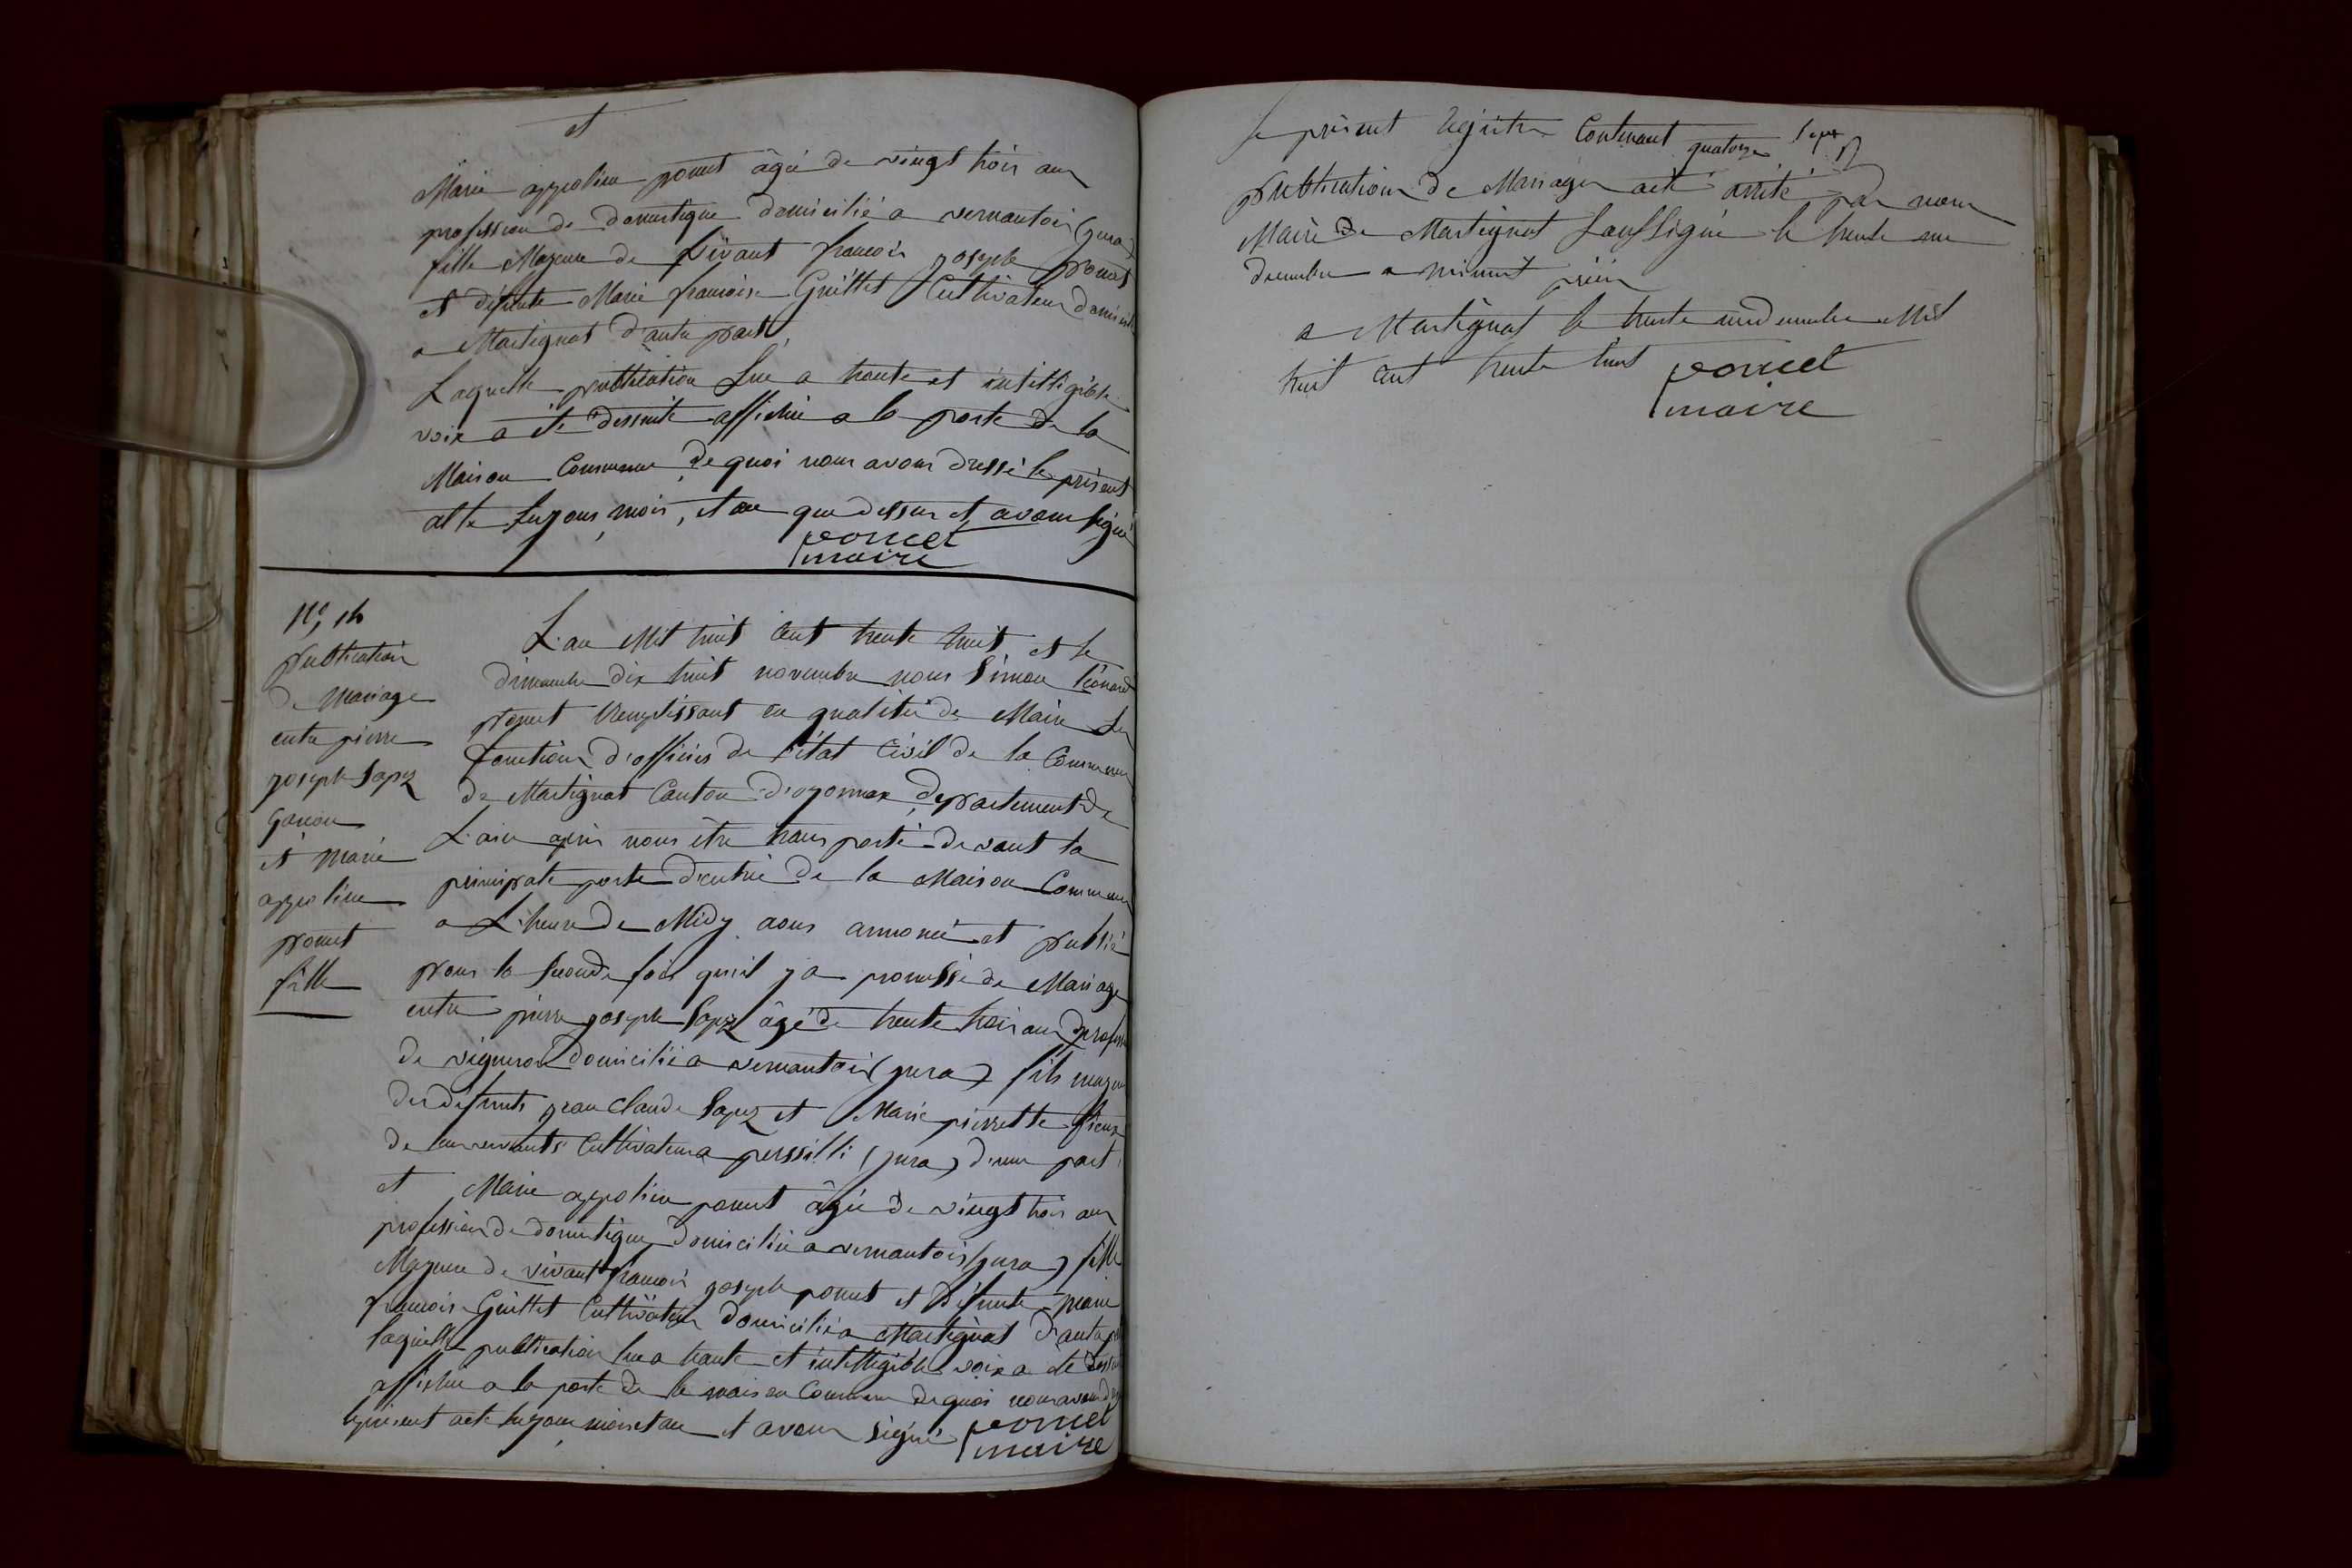 et
Marie appoline poncet âgée de vingt trois ans
profession de domestique domicilié a vernantois (jura)
fille Majeure de vivant francois joseph poncet
et défunte Marie francoise Guillet Cultivateur domicilié
a Martignat d'autre part,
Laquelle publication Lue a haute et intelligible
voix a été dessuite affichée a la porte de la
Maison Commune de quoi nous avons dressé le présent
acte les jour, mois, et an que dessus et avons signé
poncet
maire
N°, 14
publication
de Mariage
entre pierre
joseph Sapez
garcon
et marie
appoline
poncet
fille
L'an Mil huit Cent trente huit et le
dimanche dix huit novembre nous Simon léonard
poncet Remplissant en qualité de Maire Les
fonctions d'officier de l'état Civil de la Commune
de Martignat Canton d'oyonnax, departement de
L'ain après nous être transporté devant la
principale porte d'entrée de la Maison Commune
a L'heure de Midy avons annoncé et publié
pour la seconde fois qu'il y a promesse de Mariage
entre pierre joseph Sapez âgé de trente trois ans profession
de vigneron domicilié a vernantois (jura) fils majeur
des défunts jean Claude Sapez et Marie pierrette
de leur vivants Cultivateurs a (jura) d'une part,
et Marie appoline poncet âgée de vingt trois ans
profession de domestique domiciliée a vernantois (jura) fille
Majeure de vivant francois joseph poncet et défunte marie
francoise Guillet Cultivateur domicilié a Martignat d'autre part
laquelle publication lue a haute et intelligible voix a été dessuite
affichée a la porte de la maison Commune de quoi nous avons dressé
le présent acte les jour, mois et an et avons signé poncet
maire
Le présent Registre Contenant quatorze
publications de Mariages a été arrêté par nous
Maire de Martignat Soussigné le trente un
décembre a minuit précis
a Martignat le trente un décembre Mil
huit Cent trente huit poncet
maire